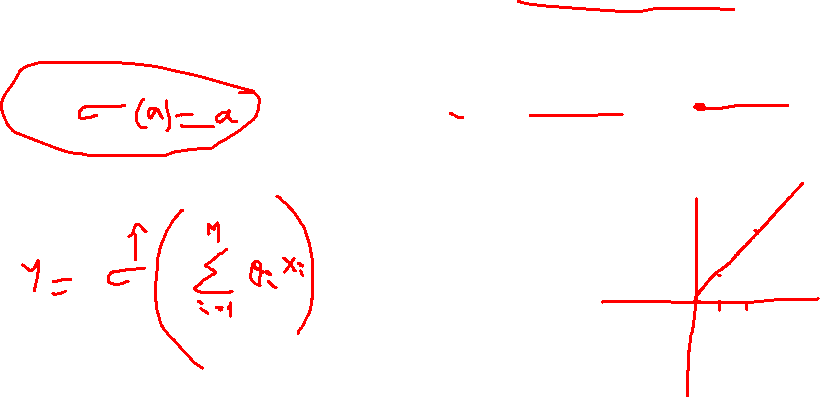 σ(a) = a
y = σ(∑_{i=1}^{M} θ_i x_i)